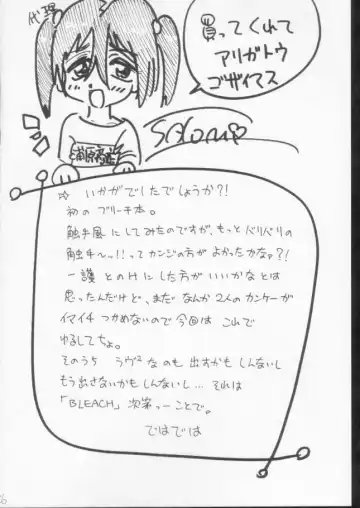 代理
買ってくれて
アリガトウ
ゴザイマス
☆ いかがでしたでしょうか?!
初のブリーチ本。
触手風にしてみたのですが、もっとバリバリの
触手～っ!!ってカンジの方がよかったかなァ?!
一護とのHにした方がいいかなとは
思ったんだけど、まだなんか2人のカンケーが
イマイチつかめないので今回はこれで
ゆるしてちょ。
そのうちラヴ²なのも出すかもしんないし
もう出さないかもしんないし…それは
「BLEACH」次第っーことで。
ではでは